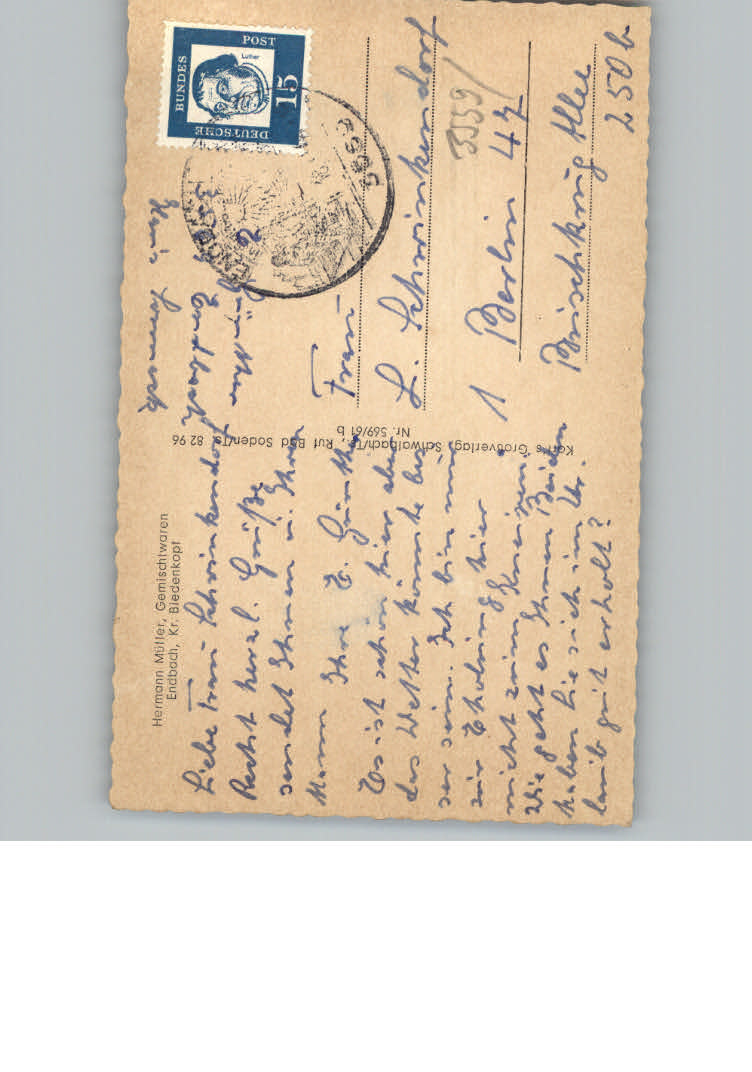 Hermann Müller, Gemischtwaren
Endbach, Kr. Biedenkopf
Liebe Frau Schwinkendorf
Recht herzl. Grüße
sendet Ihnen u. Ihrem
Mann Ihre E. Günther
Es ist schön hier aber
das Wetter könnte bes
ser sein. Ich bin nur
zur Erholung hier
nicht zum Kneipen.
Wie geht es Ihnen Beiden
haben Sie sich im Ur-
laub gut erholt?
Karl's Großverlag, Schwalbach/Ts., Ruf Bad Soden/Ts. 82 96
Nr. 569/61 b
Haus
Endbach
DEUTSCHE BUNDESPOST
Luther
15
Frau
L. Schwinkendorf
3559/
1 Berlin 47
Buschkrug Allee
250 b